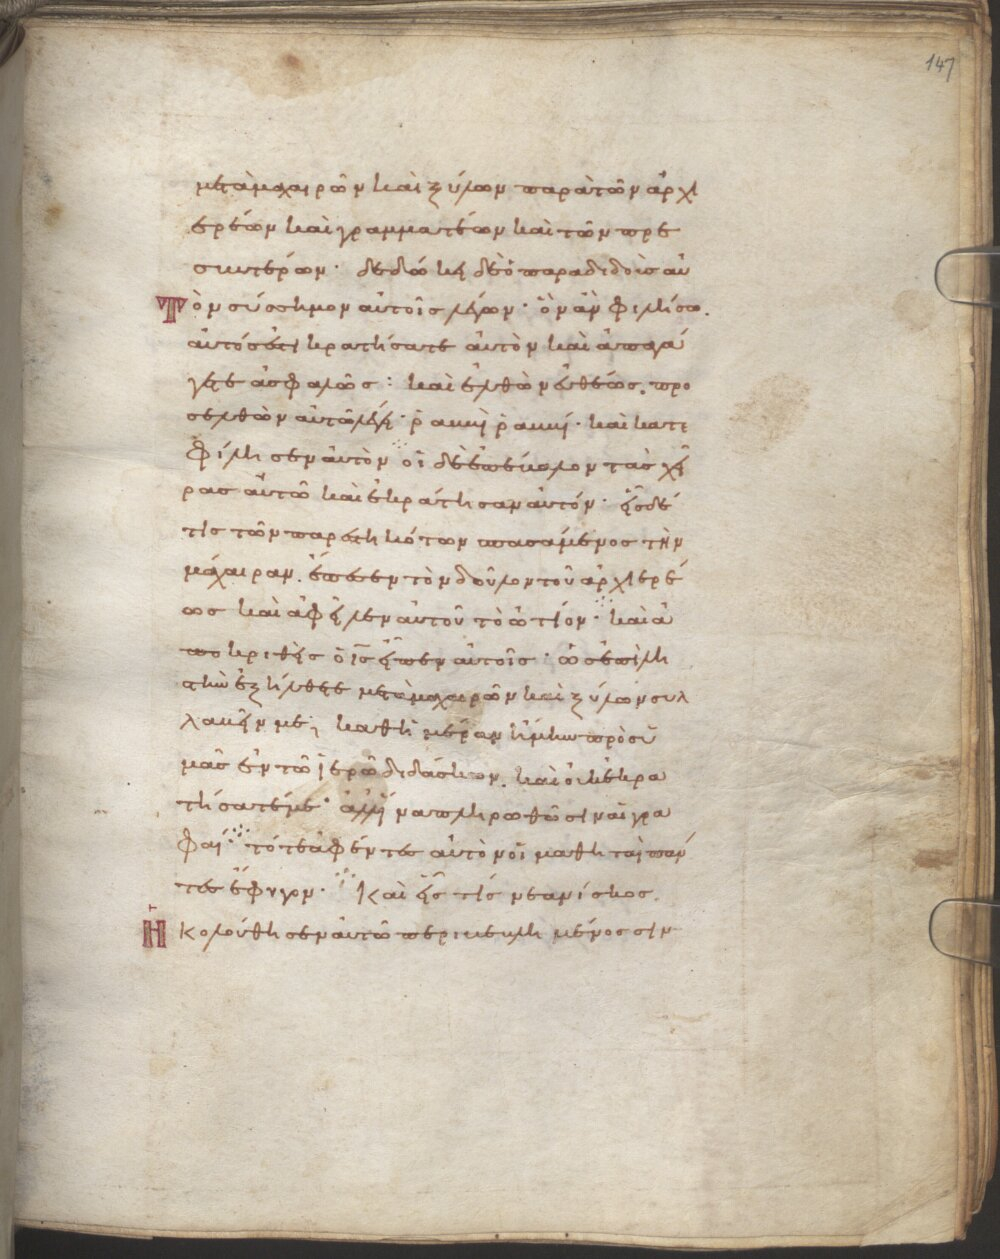 147
μετὰ μαχαιρῶν καὶ ξύλων παρὰ τῶν ἀρχι
ερέων καὶ γραμματέων καὶ τῶν πρε
σβυτέρων· δεδώκει δὲ ὁ παραδιδοὺς αὐ
Τὸν σύσσημον αὐτοῖς λέγων· ὃν ἂν φιλήσω.
αὐτός ἐστι κρατήσατε αὐτὸν καὶ ἀπαγά
γετε ἀσφαλῶς: καὶ ἐλθὼν εὐθέως. προ
σελθὼν αὐτῶ λέγει· ῥαββὶ ῥαββί· καὶ κατε
φίλησεν αὐτὸν οἱ δὲ ἐπέβαλον τὰς χεῖ
ρας αὐτῶ καὶ ἐκράτησαν αὐτόν· εἷς δέ
τίς τῶν παρεστηκότων σπασάμενος τὴν
μάχαιραν. ἔπεσεν τὸν δοῦλον τοῦ ἀρχιερέ
ως καὶ ἀφεῖλεν αὐτοῦ τὸ ὠτίον· καὶ ἀ
ποκριθεὶς ὁ ις εἶπεν αὐτοῖς· ὡς ἐπὶ λη
στὴν ἐξήλθετε μετὰ μαχαιρῶν καὶ ξύλων συλ
λαβεῖν με; καθημέραν ἤμην πρὸς ὑ
μᾶς ἐν τῶ ἱερῶ διδάσκων. καὶ οὐκ ἐκρα
τήσατέ με· ἀλλ' ἵνα πληρωθῶσιν αἱ γρα
φαί· τότε ἀφέντες αὐτὸν οἱ μαθηταὶ πάν
τες ἔφυγον· Καὶ εἷς τίς νεανίσκος.
Ηκολούθησεν αὐτῶ περιβεβλημένος σιν